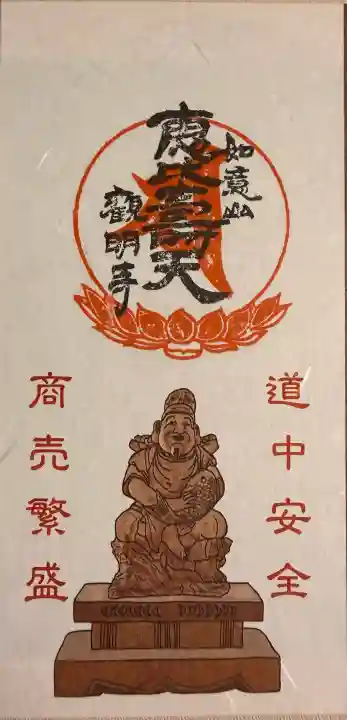 如意山
恵比寿天
観明寺
道中安全
商売繁盛